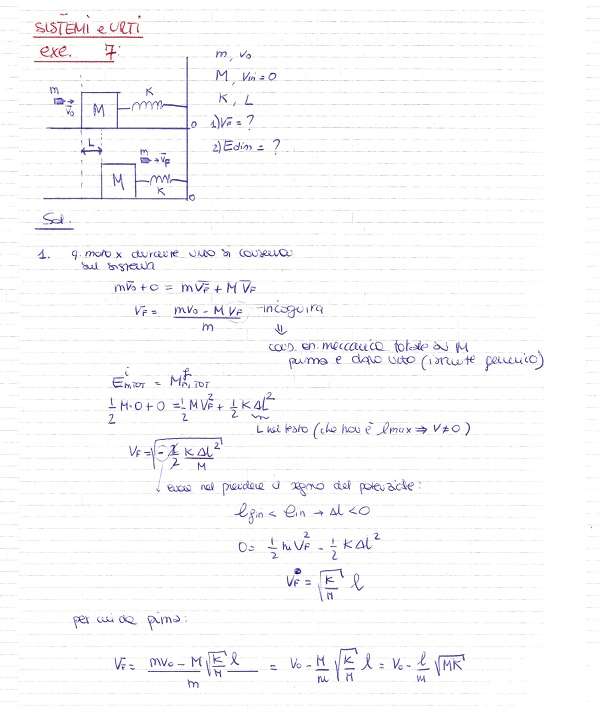 SISTEMI e URTI
exe. 7:
m, v0
M, Vin = 0
K, L
1) VF = ?
2) Edin = ?
m
v0
M
K
0
L
m
→ VF
M
K
0
Sol.
1. q. moto x durante urto si conserva
sul sistema
mV0 + 0 = mVF + MVF
VF = (mV0 - MVF) / m incognita
⇓
cons. en. meccanica totale su M
prima e dopo urto (istante generico)
E^i m,TOT = M^f m,TOT
1/2 M·0 + 0 = 1/2 MVF^2 + 1/2 KΔl^2
L nel testo (che non è lmax ⇒ V≠0)
VF = √(-2/2 KΔl^2/M)
errore nel prendere il segno del potenziale:
lfin < lin → Δl < 0
0 = 1/2 MVF^2 - 1/2 KΔl^2
VF = √(K/M) l
per cui da prima:
VF = (mV0 - M√(K/M) l) / m = V0 - M/m √(K/M) l = V0 - l/m √(MK)